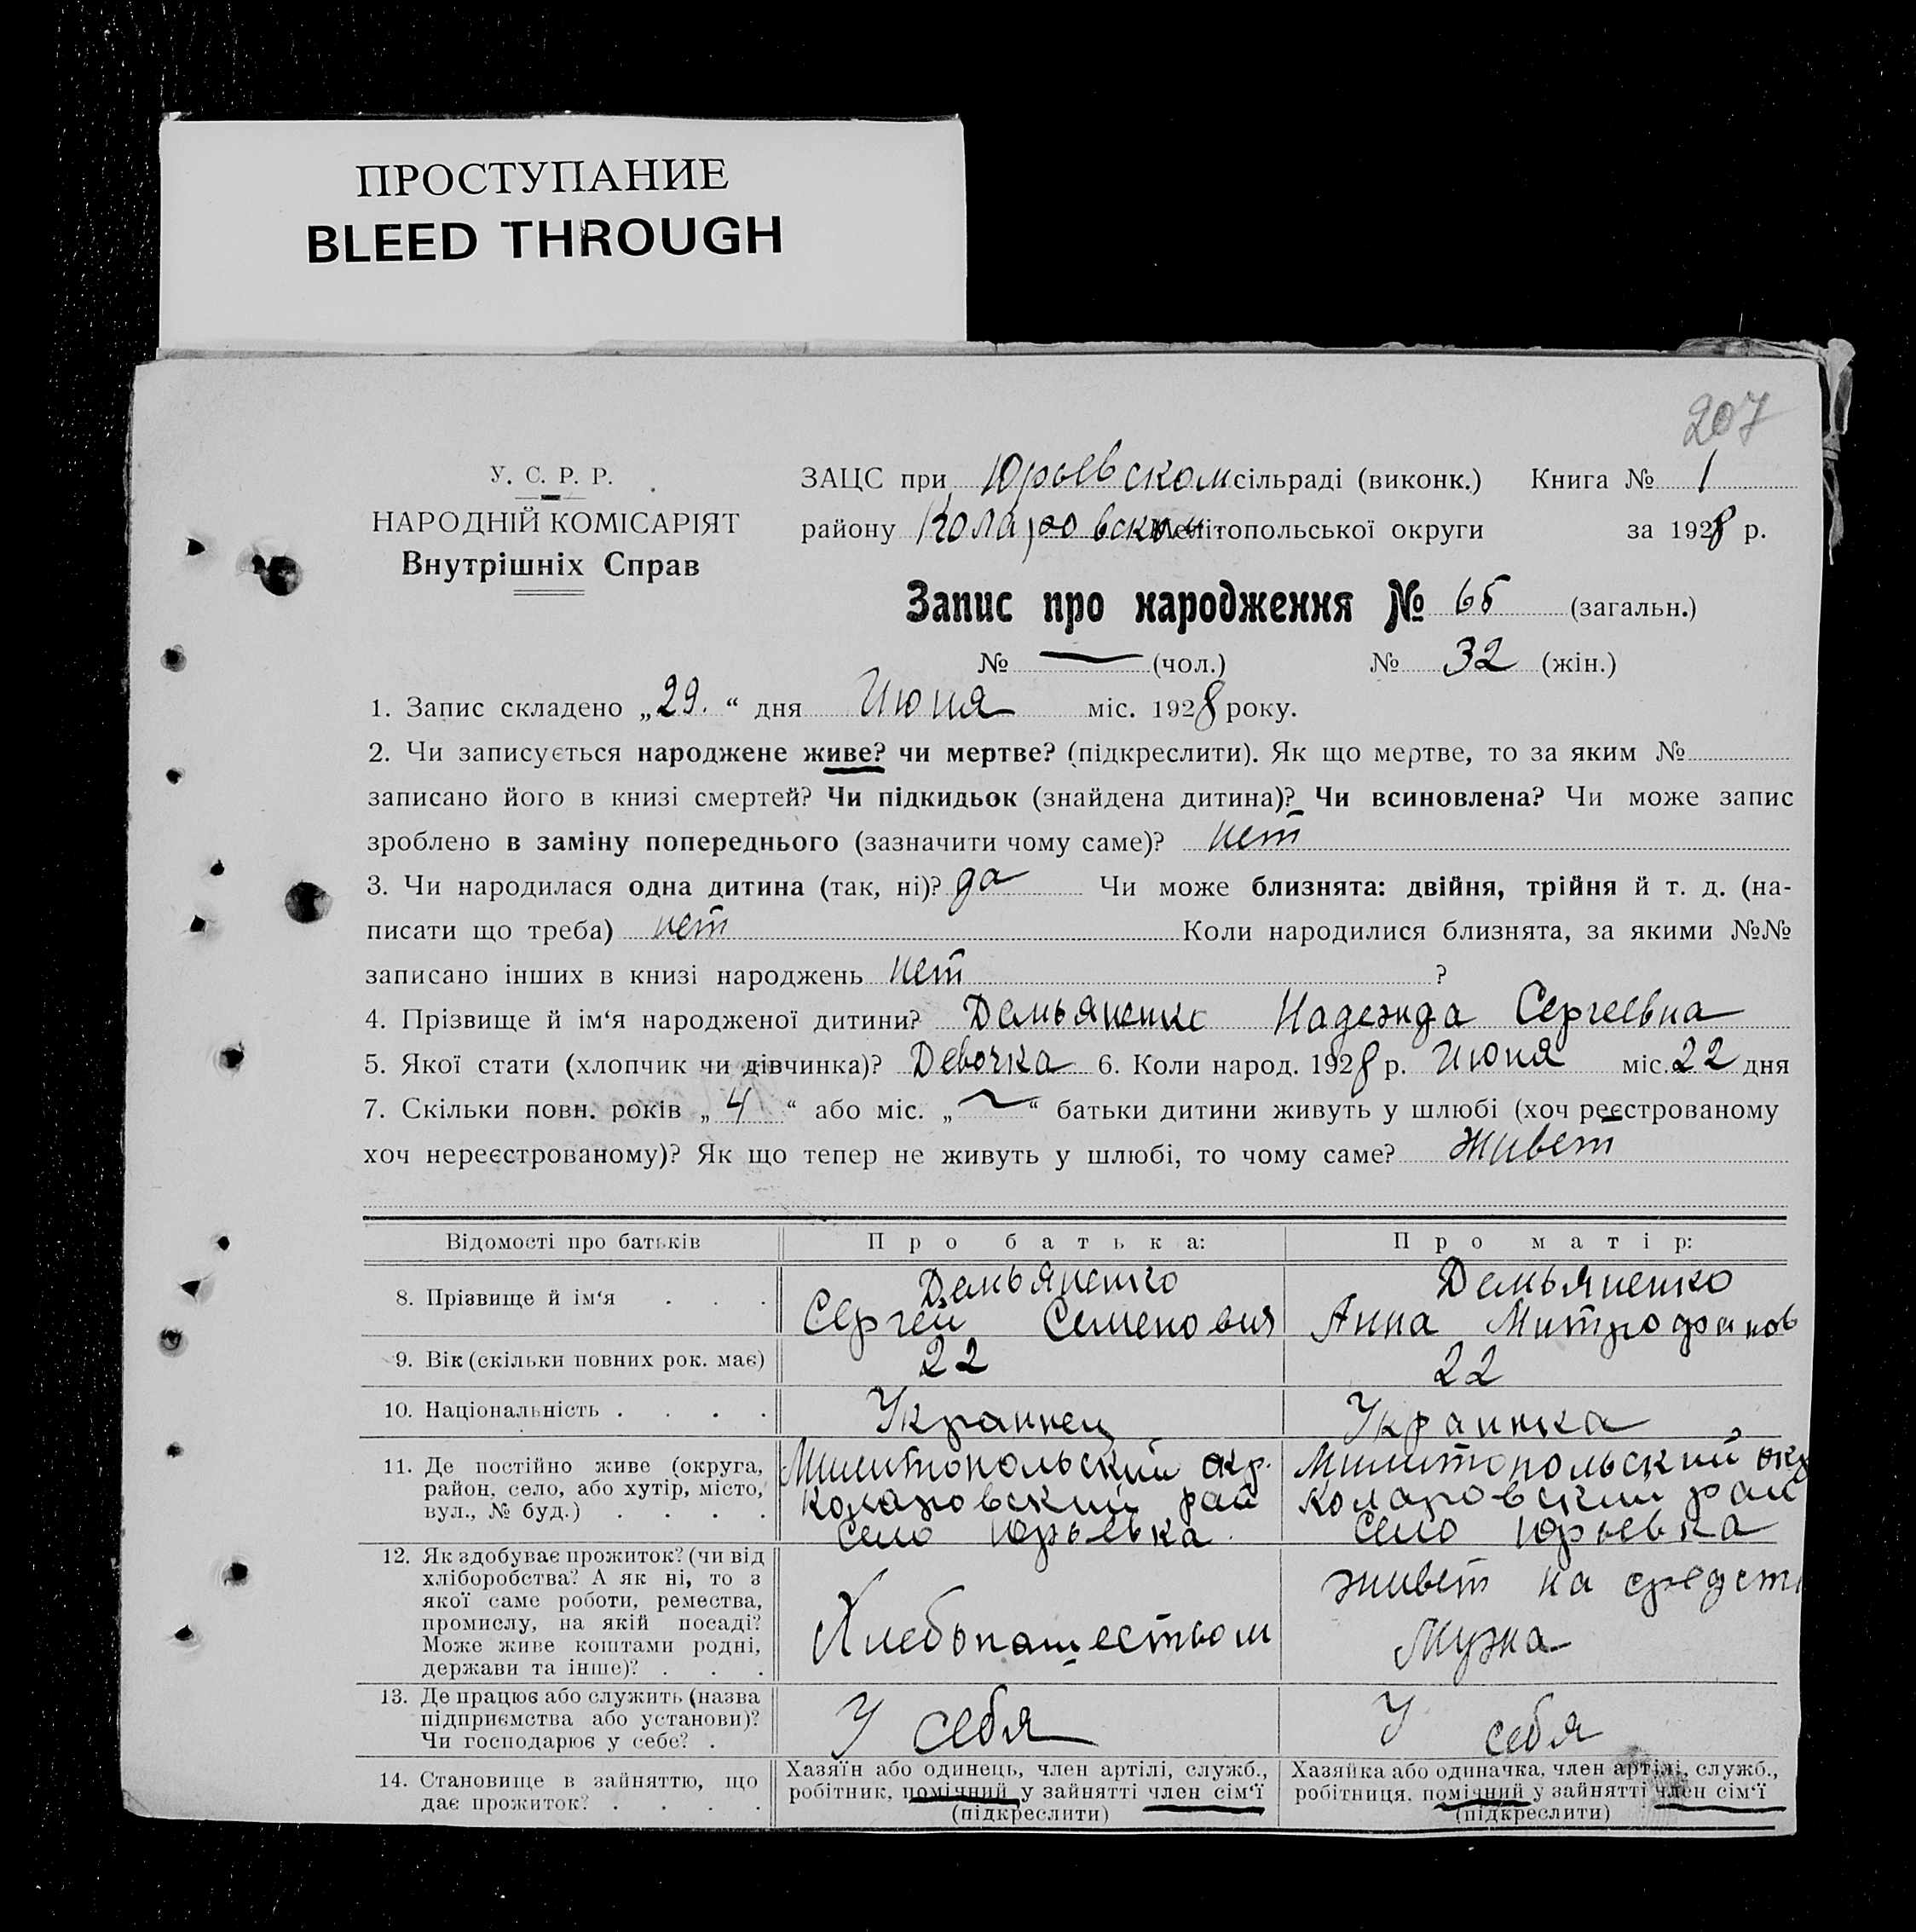 ПРОСТУПАНИЕ
BLEED THROUGH
207
У. С. Р. Р.
НАРОДНІЙ КОМІСАРІЯТ
Внутрішніх Справ
ЗАЦС при Юрьевском сільраді (виконк.) Книга № 1
району Коларовским Мелітопольської округи за 1928 р.
Запис про народження № 65 (загальн.)
№ — (чол.) № 32 (жін.)
1. Запис складено „29.“ дня Июня міс. 1928 року.
2. Чи записується народжене живе? чи мертве? (підкреслити). Як що мертве, то за яким №
записано його в книзі смертей? Чи підкидьок (знайдена дитина)? Чи всиновлена? Чи може запис
зроблено в заміну попереднього (зазначити чому саме)? нет
3. Чи народилася одна дитина (так, ні)? да Чи може близнята: двійня, трійня й т. д. (на-
писати що треба) нет Коли народилися близнята, за якими №№
записано інших в книзі народжень нет ?
4. Прізвище й ім‘я народженої дитини? Демьяненко Надежда Сергеевна
5. Якої стати (хлопчик чи дівчинка)? Девочка 6. Коли народ. 1928 р. Июня міс. 22 дня
7. Скільки повн. років „4“ або міс. „~“ батьки дитини живуть у шлюбі (хоч реєстрованому
хоч нереєстрованому)? Як що тепер не живуть у шлюбі, то чому саме? Живет
Відомості про батьків Про батька: Про матір:
8. Прізвище й ім‘я . . . Демьяненко Сергей Семенович Демьяненко Анна Митрофанов
9. Вік (скільки повних рок. має) 22 22
10. Національність . . . . Украинец Украинка
11. Де постійно живе (округа,
район, село, або хутір, місто,
вул., № буд.) . . . .
Милитопольский окр.
Коларовский рай
Село Юрьевка.
Милитопольский окр
Коларовский рай
Село Юрьевка
12. Як здобуває прожиток? (чи від
хліборобства? А як ні, то з
якої саме роботи, ремества,
промислу, на якій посаді?
Може живе коштами родні,
держави та інше)? . . .
Хлебопашеством
живет на средств
Мужа
13. Де працює або служить (назва
підприємства або установи)?
Чи господарює у себе? .
У себя
У себя
14. Становище в зайняттю, що
дає прожиток? . . . .
Хазяїн або одинець, член артілі, служб.,
робітник, помічний у зайнятті член сім‘ї
(підкреслити)
Хазяйка або одиначка, член артілі, служб.,
робітниця, помічний у зайнятті член сім‘ї
(підкреслити)